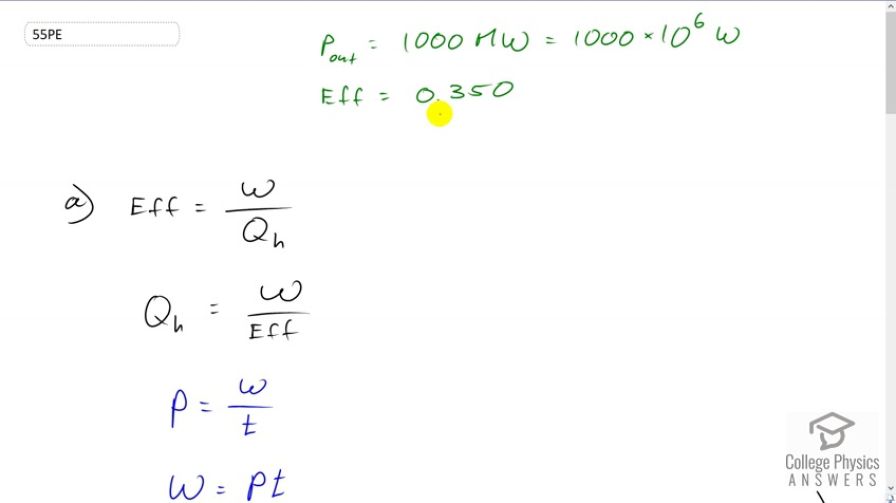 55PE
P_out = 1000 MW = 1000 × 10^6 W
Eff = 0.350
a) Eff = W / Q_h
Q_h = W / Eff
P = W / t
W = Pt
College Physics
ANSWERS